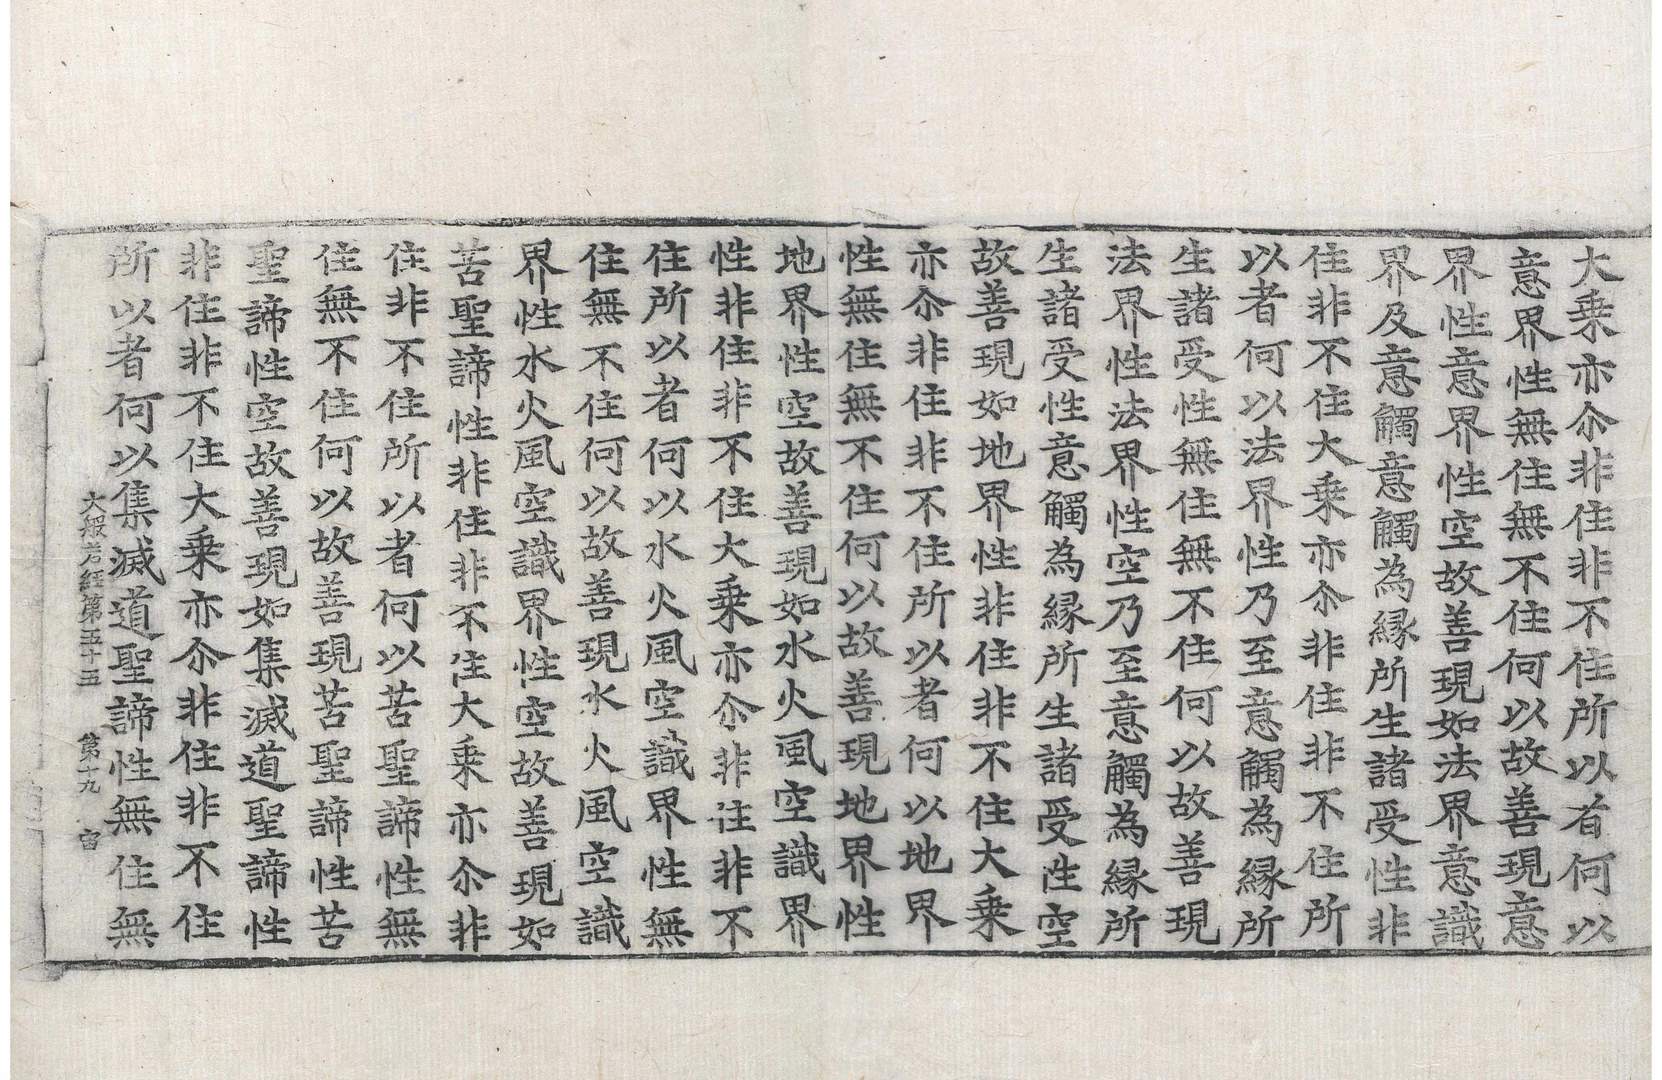 大乗亦尒非住非不住所以者何以
意界性無住無不住何以故善現意
界性意界性空故善現如法界意識
界及意觸意觸為縁所生諸受性非
住非不住大乗亦尒非住非不住所
以者何以法界性乃至意觸為縁所
生諸受性無住無不住何以故善現
法界性法界性空乃至意觸為縁所
生諸受性意觸為縁所生諸受性空
故善現如地界性非住非不住大乗
亦尒非住非不住所以者何以地界
性無住無不住何以故善現地界性
地界性空故善現如水火風空識界
性非住非不住大乗亦尒非住非不
住所以者何以水火風空識界性無
住無不住何以故善現水火風空識
界性水火風空識界性空故善現如
苦聖諦性非住非不住大乗亦尒非
住非不住所以者何以苦聖諦性無
住無不住何以故善現苦聖諦性苦
聖諦性空故善現如集滅道聖諦性
非住非不住大乗亦尒非住非不住
所以者何以集滅道聖諦性無住無
大般若經第五十五 第十九 宙